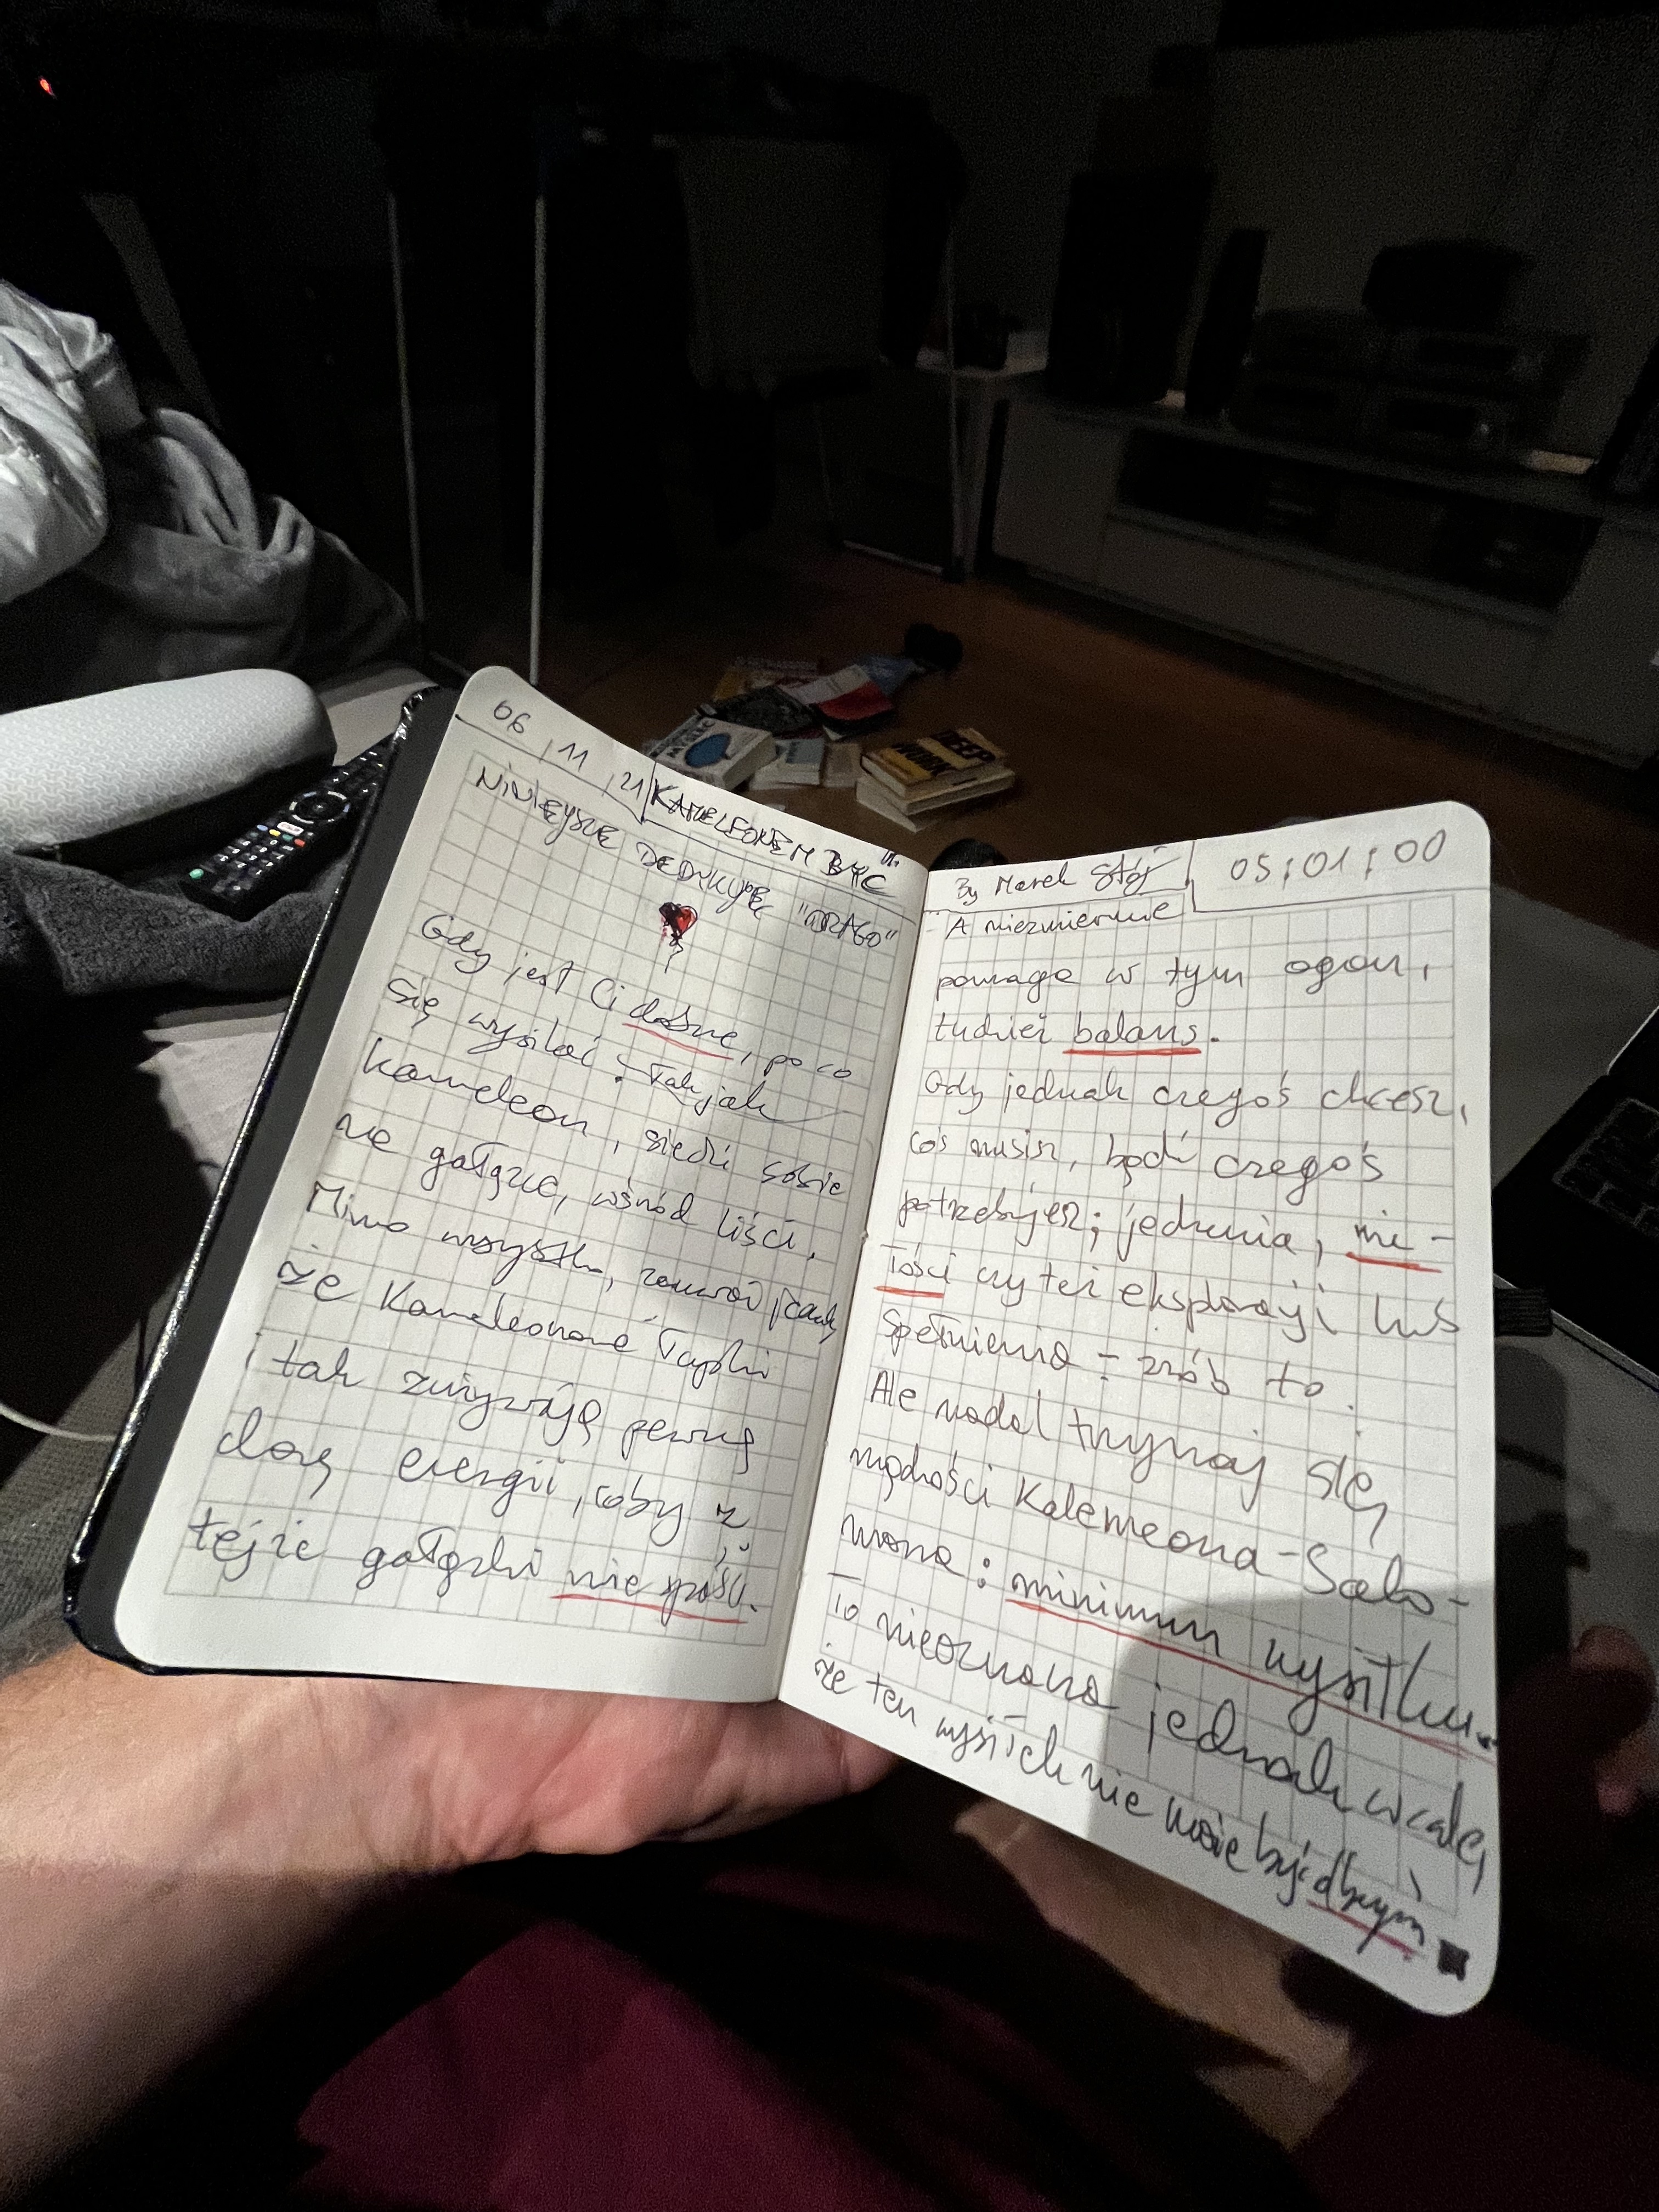 06 / 11 / 21 KAMELEONEM BYĆ
NINIEJSZE DEDYKUJĘ "DRAGO"
Gdy jest Ci dobrze, po co
się wysilać? Tak jak
kameleon, siedź sobie
na gałązce, wśród liści.
Mimo wszystko, zauważ jednak,
że Kameleonowe Łapki
i tak zużywają pewną
dozę energii, coby z
tejże gałązki nie spaść.
By Marek Stój 05:01:00
A niezmiernie
pomaga w tym ogon,
tudzież balans.
Gdy jednak czegoś chcesz,
coś musisz, bądź czegoś
potrzebujesz; jedzenia, mi-
łości czy też eksploracji lub
spełnienia - zrób to!
Ale nadal trzymaj się
mądrości Kalemeona-Salo-
mona: minimum wysiłku.
To nieoznana jednak wcale,
że ten wysiłek nie może być dużym
DEEP
WORK